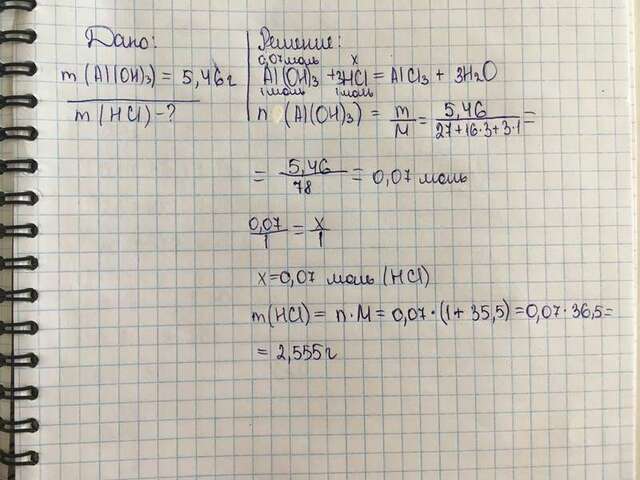 Дано:
m (Al(OH)₃) = 5,46г
m (HCl) - ?
Решение:
0,07моль x
Al(OH)₃ + 3HCl = AlCl₃ + 3H₂O
1моль 1моль
n (Al(OH)₃) = m/M = 5,46/27+16·3+3·1 =
= 5,46/78 = 0,07 моль
0,07/1 = x/1
x=0,07 моль (HCl)
m(HCl) = n·M = 0,07·(1+35,5)=0,07·36,5=
= 2,555г